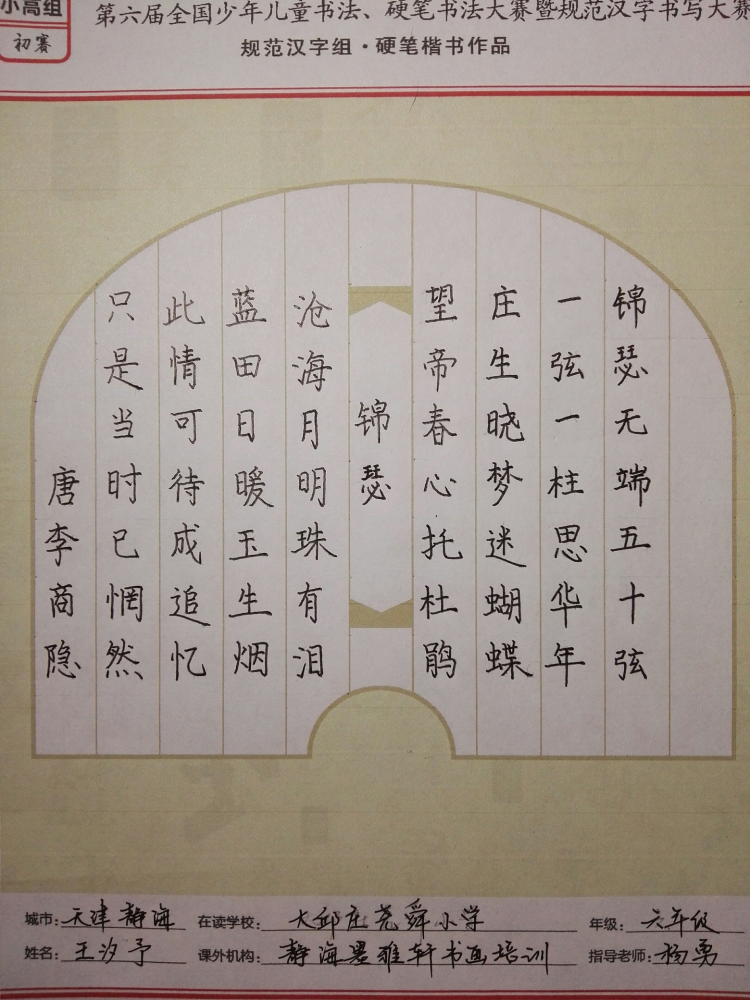 小高组
初赛
第六届全国少年儿童书法、硬笔书法大赛暨规范汉字书写大赛
规范汉字组·硬笔楷书作品
锦瑟无端五十弦
一弦一柱思华年
庄生晓梦迷蝴蝶
望帝春心托杜鹃
锦瑟
沧海月明珠有泪
蓝田日暖玉生烟
此情可待成追忆
只是当时已惘然
唐李商隐
城市:天津静海 在读学校:大邱庄尧舜小学 年级:六年级
姓名:王汐予 课外机构:静海墨雅轩书画培训 指导老师:杨勇